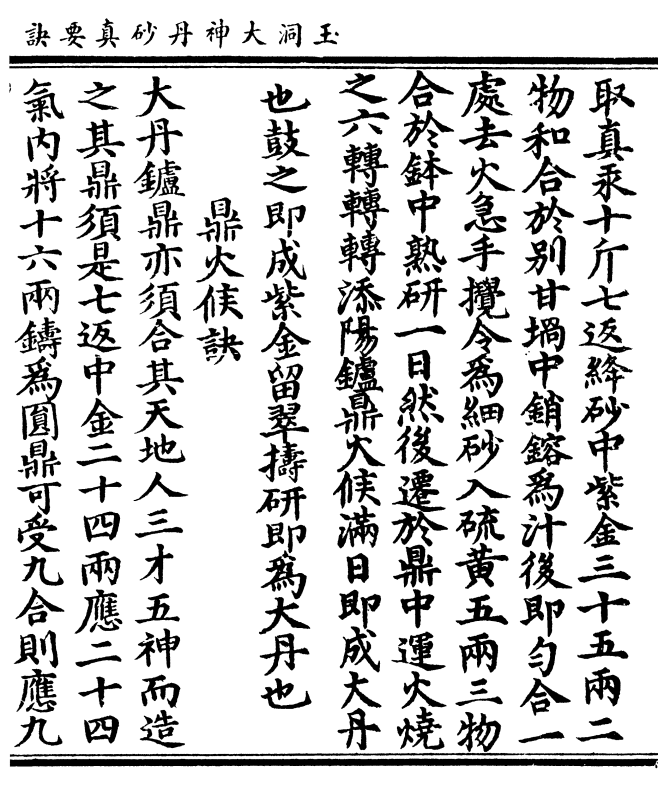 玉洞大神丹砂真要訣
取真汞十斤七返絳砂中紫金三十五兩二
物和合於別甘堝中銷鎔爲汁後即勻合一
處去火急手攪令爲細砂入硫黄五兩三物
合於鉢中熟研一日然後遷於鼎中運火燒
之六轉轉轉添陽鑪鼎火候滿日即成大丹
也鼓之即成紫金留翠擣研即爲大丹也
鼎火候訣
大丹鑪鼎亦須合其天地人三才五神而造
之其鼎須是七返中金二十四兩應二十四
氣内將十六兩鑄爲圓鼎可受九合則應九